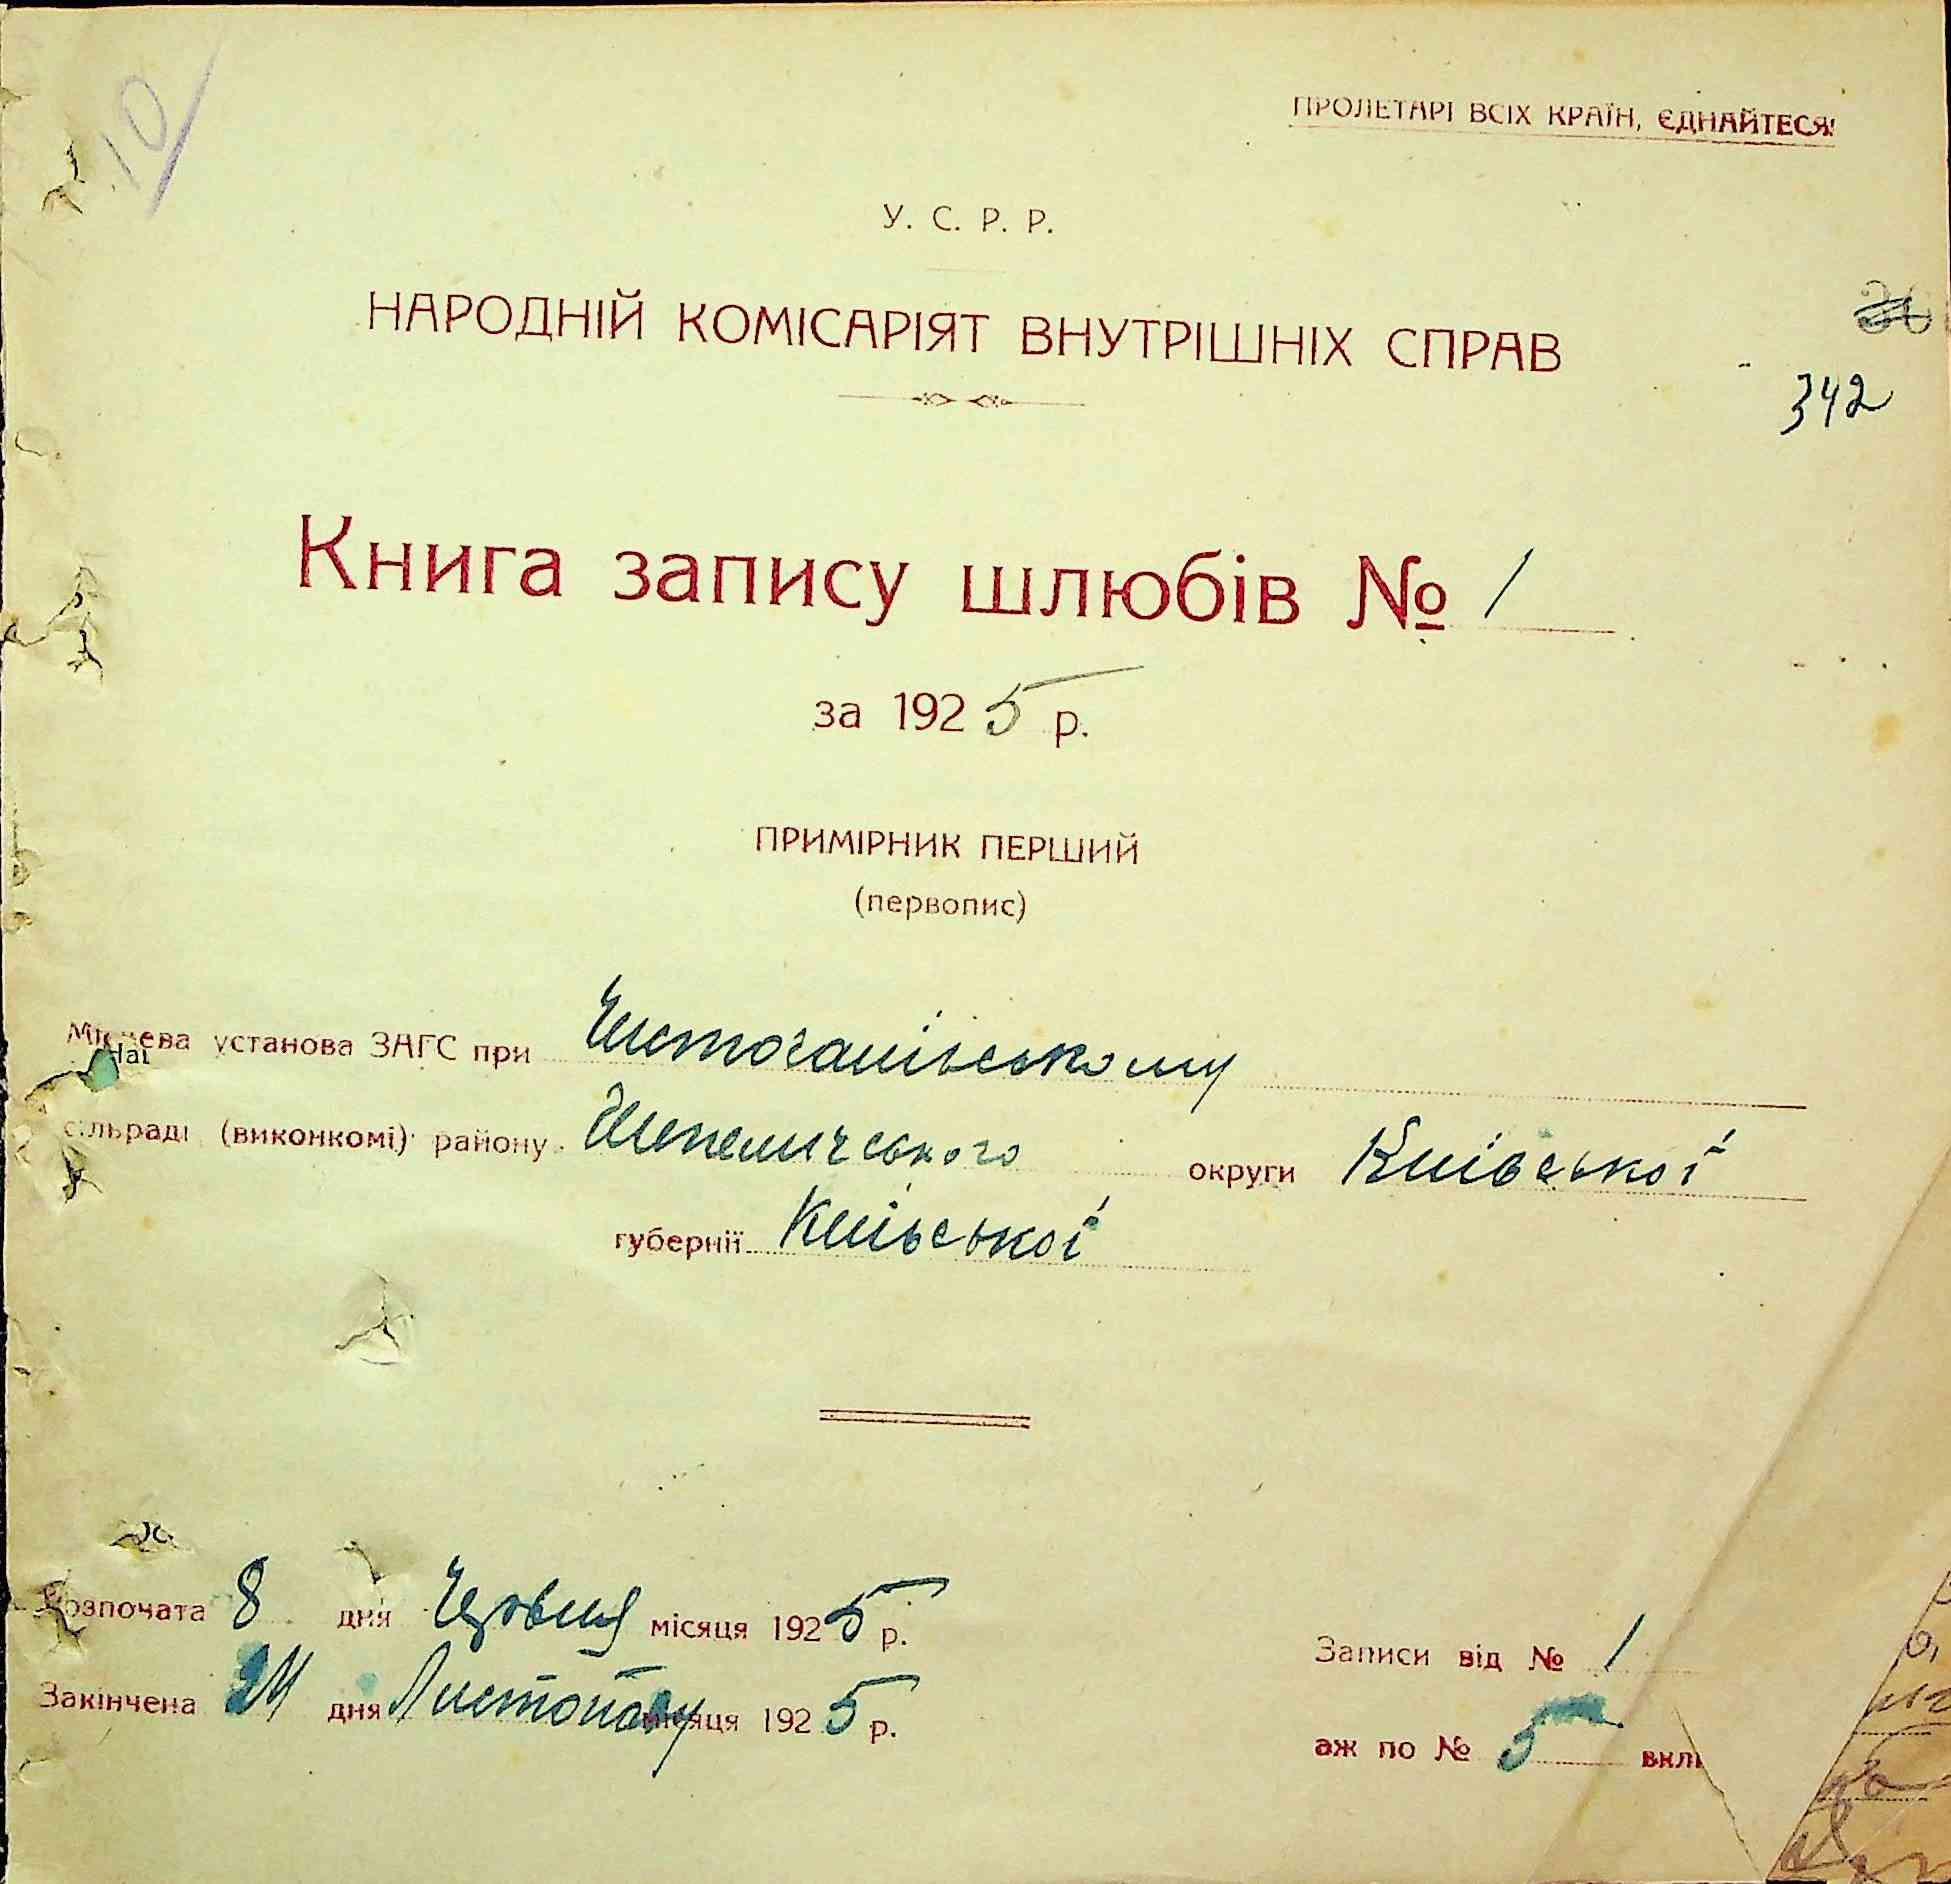 10
ПРОЛЕТАРІ ВСІХ КРАЇН, ЄДНАЙТЕСЯ!
У. С. Р. Р.
НАРОДНІЙ КОМІСАРІЯТ ВНУТРІШНІХ СПРАВ
342
Книга запису шлюбів № 1
за 1925 р.
ПРИМІРНИК ПЕРШИЙ
(первопис)
Місцева установа ЗАГС при Чистогалівському
сільраді (виконкомі) району Шепелицького округи Київської
губернії Київської
Розпочата 8 дня Червня місяця 1925 р.
Закінчена 24 дня Листопаду місяця 1925 р.
Записи від № 1
аж по № 5 вкл